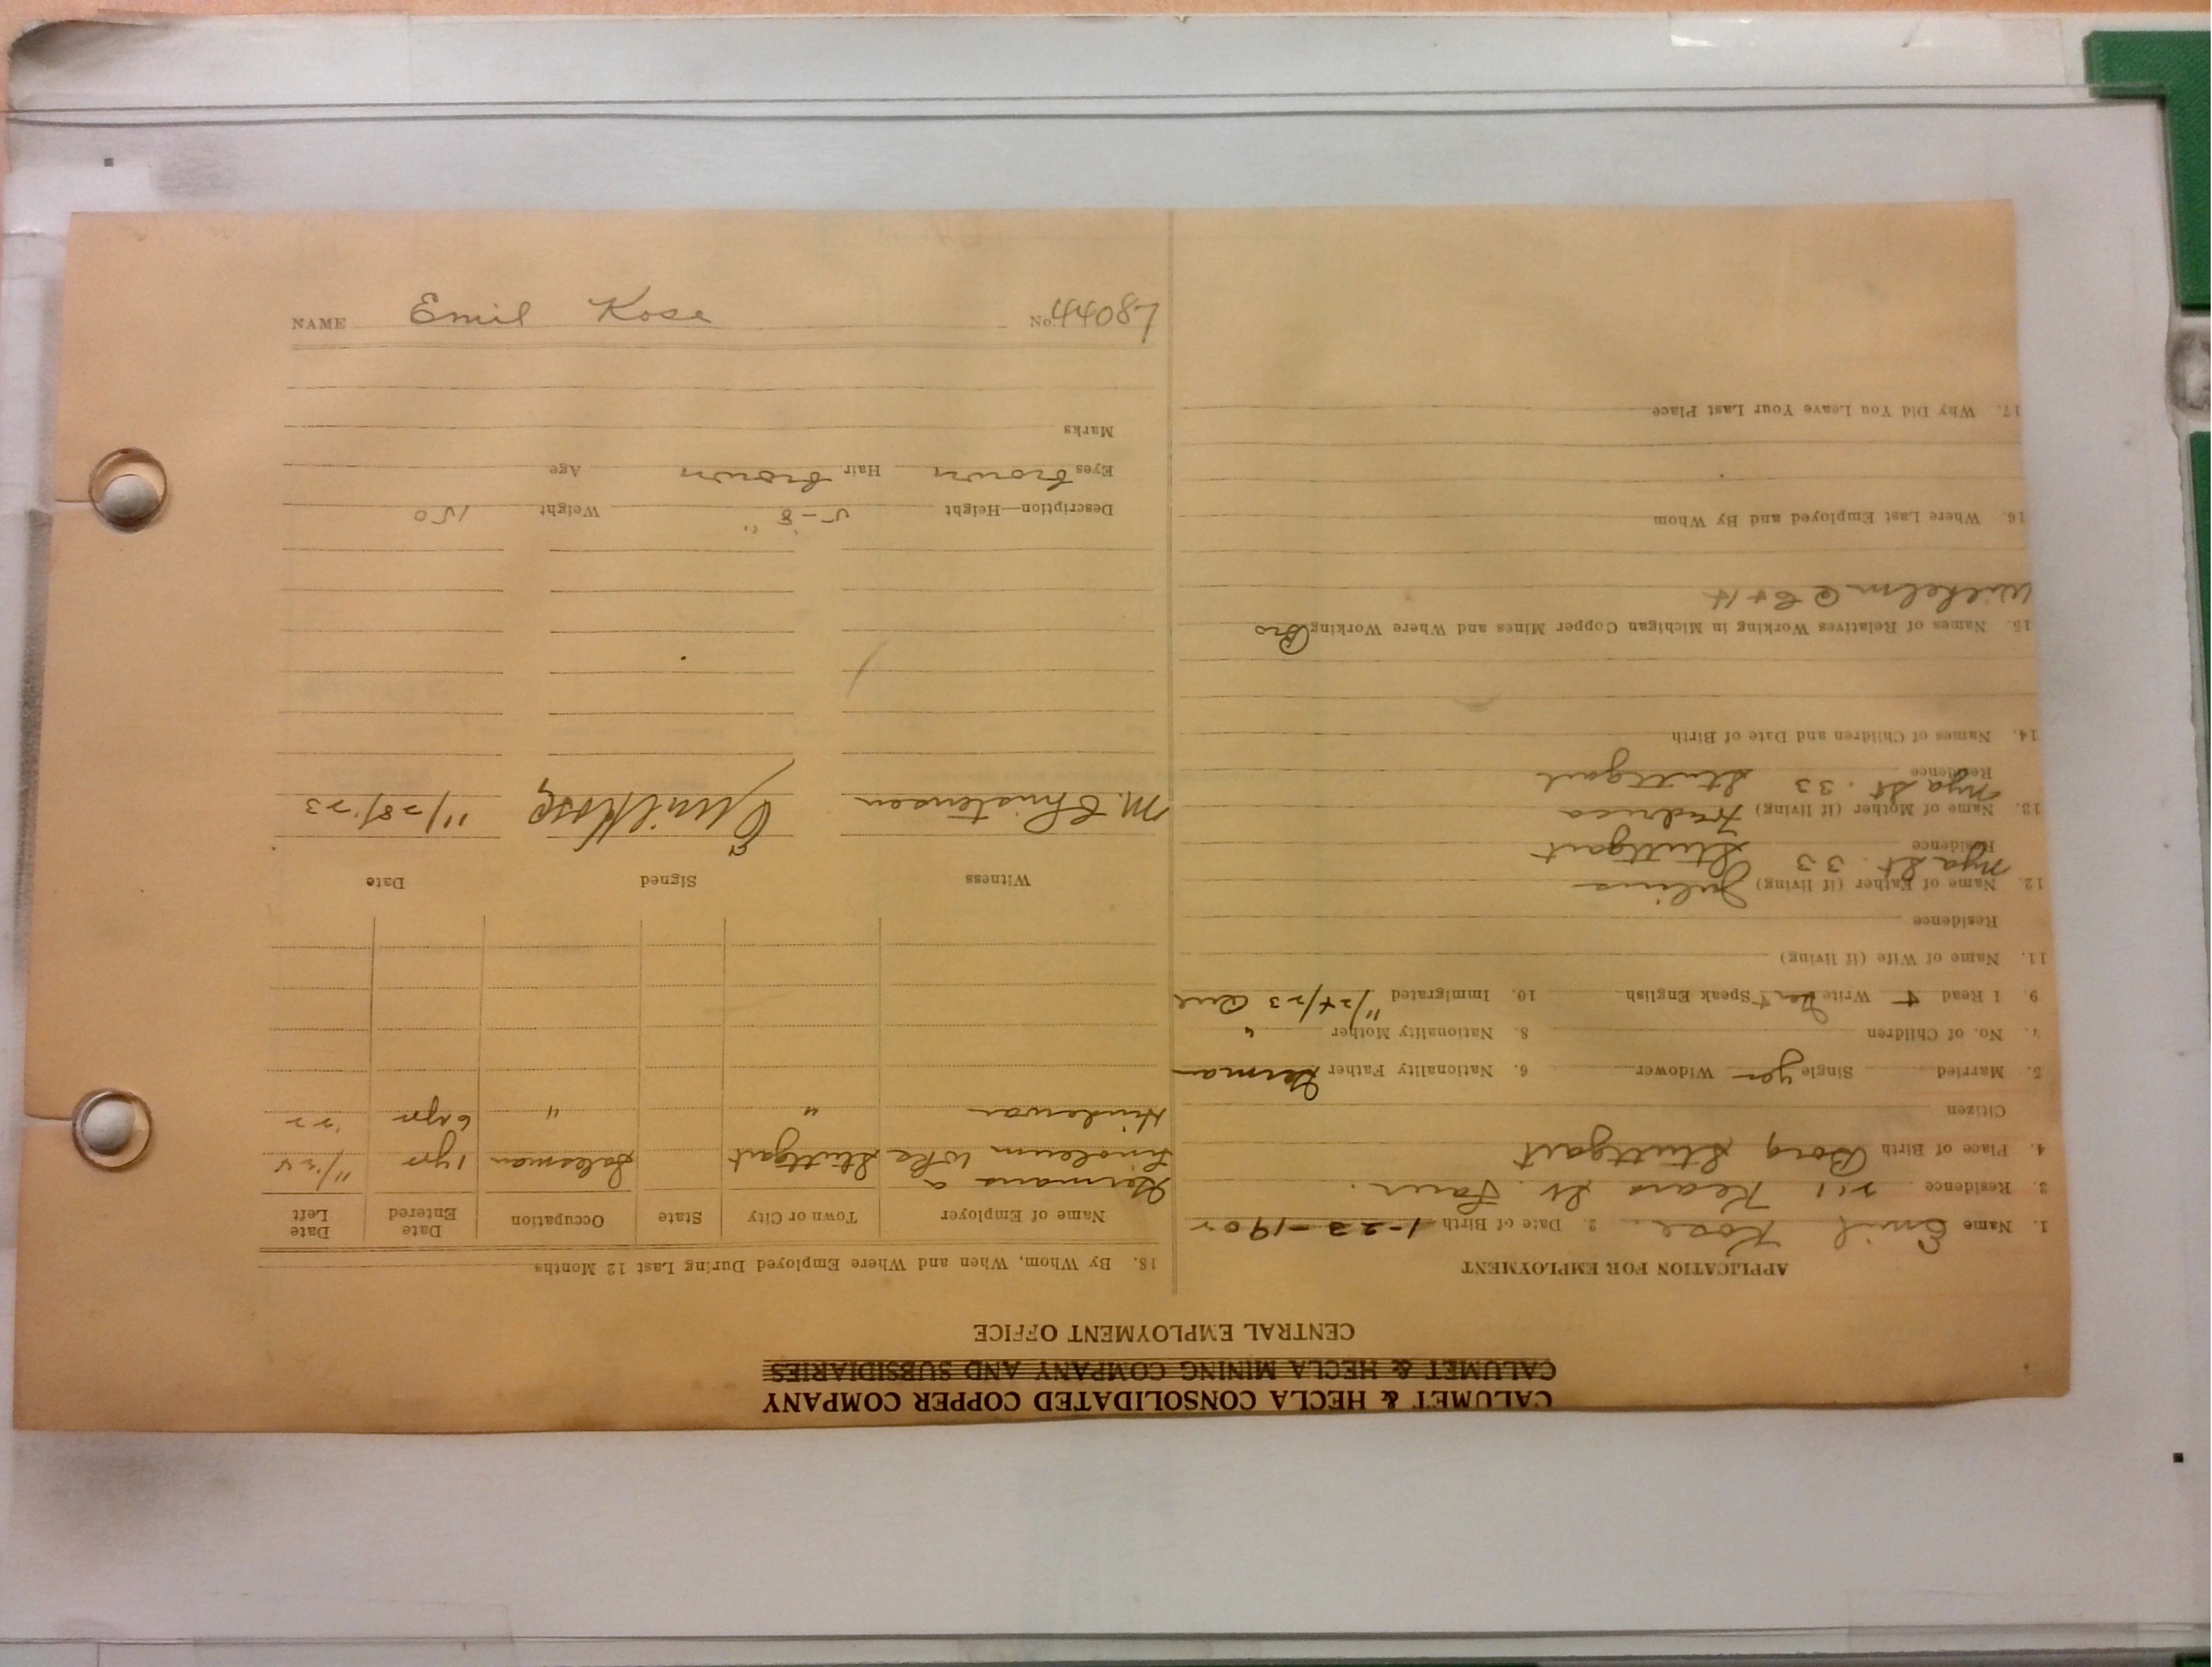 NAME Emil Kose No. 44087
CALUMET & HECLA CONSOLIDATED COPPER COMPANY
CALUMET & HECLA MINING COMPANY AND SUBSIDIARIES
CENTRAL EMPLOYMENT OFFICE
APPLICATION FOR EMPLOYMENT
1. Name Emil Kose 2. Date of Birth 1-23-1902
3. Residence Kears St.
4. Place of Birth Stuttgart
Citizen
5. Married Single yes Widower 6. Nationality Father German
7. No. of Children 8. Nationality Mother "
9. I Read + Write Speak English 10. Immigrated 11/24/23
11. Name of Wife (if living)
Residence
12. Name of Father (if living) Julius
Residence Stuttgart
St. 33
13. Name of Mother (if living)
Residence Stuttgart
St. 33
14. Names of Children and Date of Birth
15. Names of Relatives Working in Michigan Copper Mines and Where Working Bro
Wilhelm @ C + H
16. Where Last Employed and By Whom
17. Why Did You Leave Your Last Place
18. By Whom, When and Where Employed During Last 12 Months
Name of Employer Town or City State Occupation Date Entered Date Left
Germans
Linoleum Wke Stuttgart Salesman 1 yr
" " 6 yrs '22
Witness Signed Date
M. Christensen Emil Kose 11/28/23
Description—Height 5-8" Weight 150
Eyes brown Hair brown Age
Marks